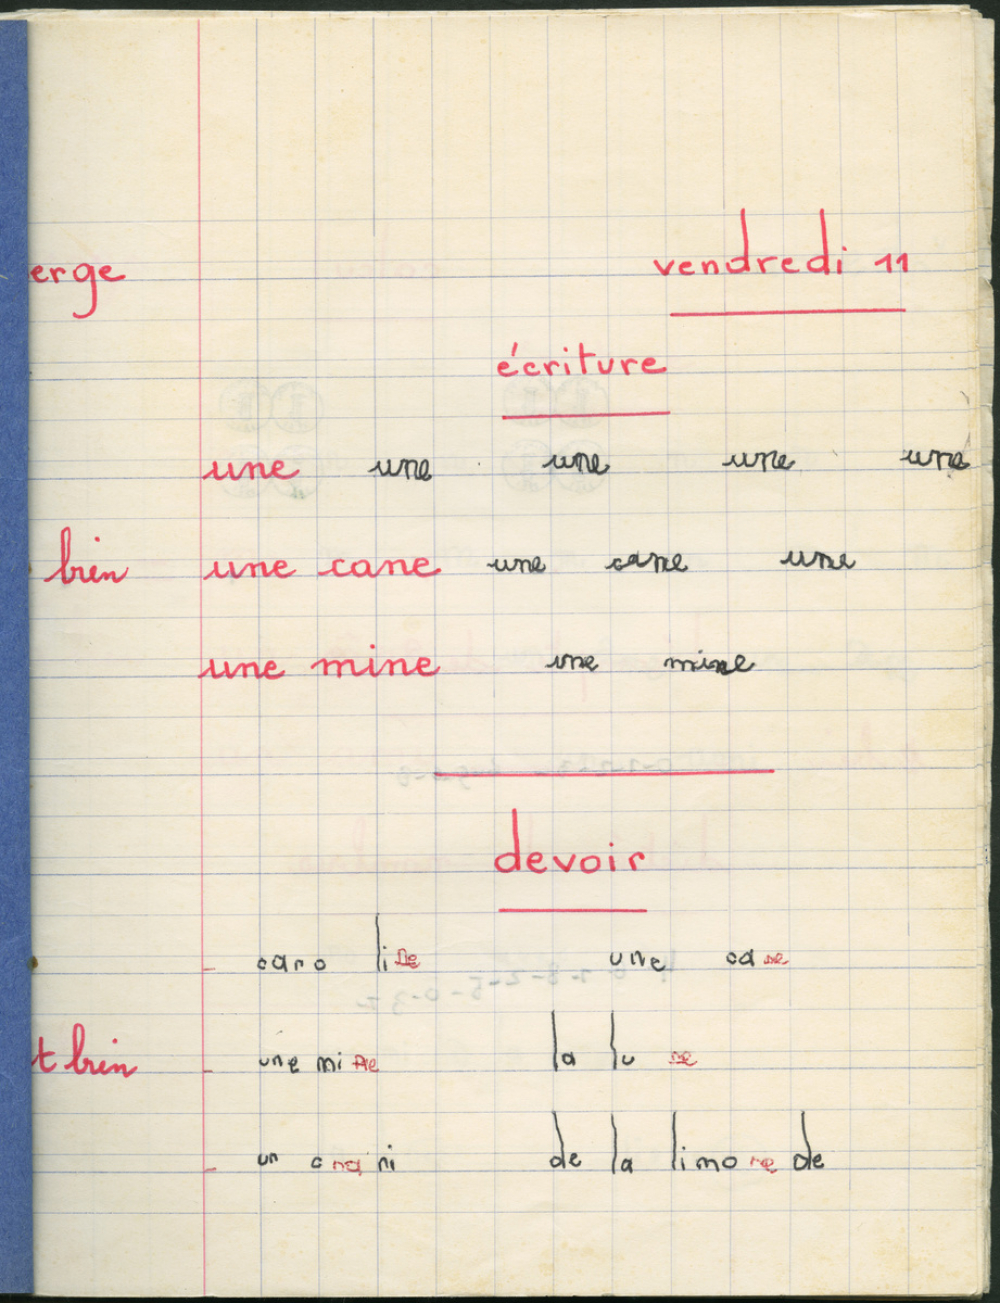 erge vendredi 11
écriture
une une une une une
bien une cane une cane une
une mine une mine
devoir
caro line une cane
t bien une mine la lu ne
un cana ni de la limona de